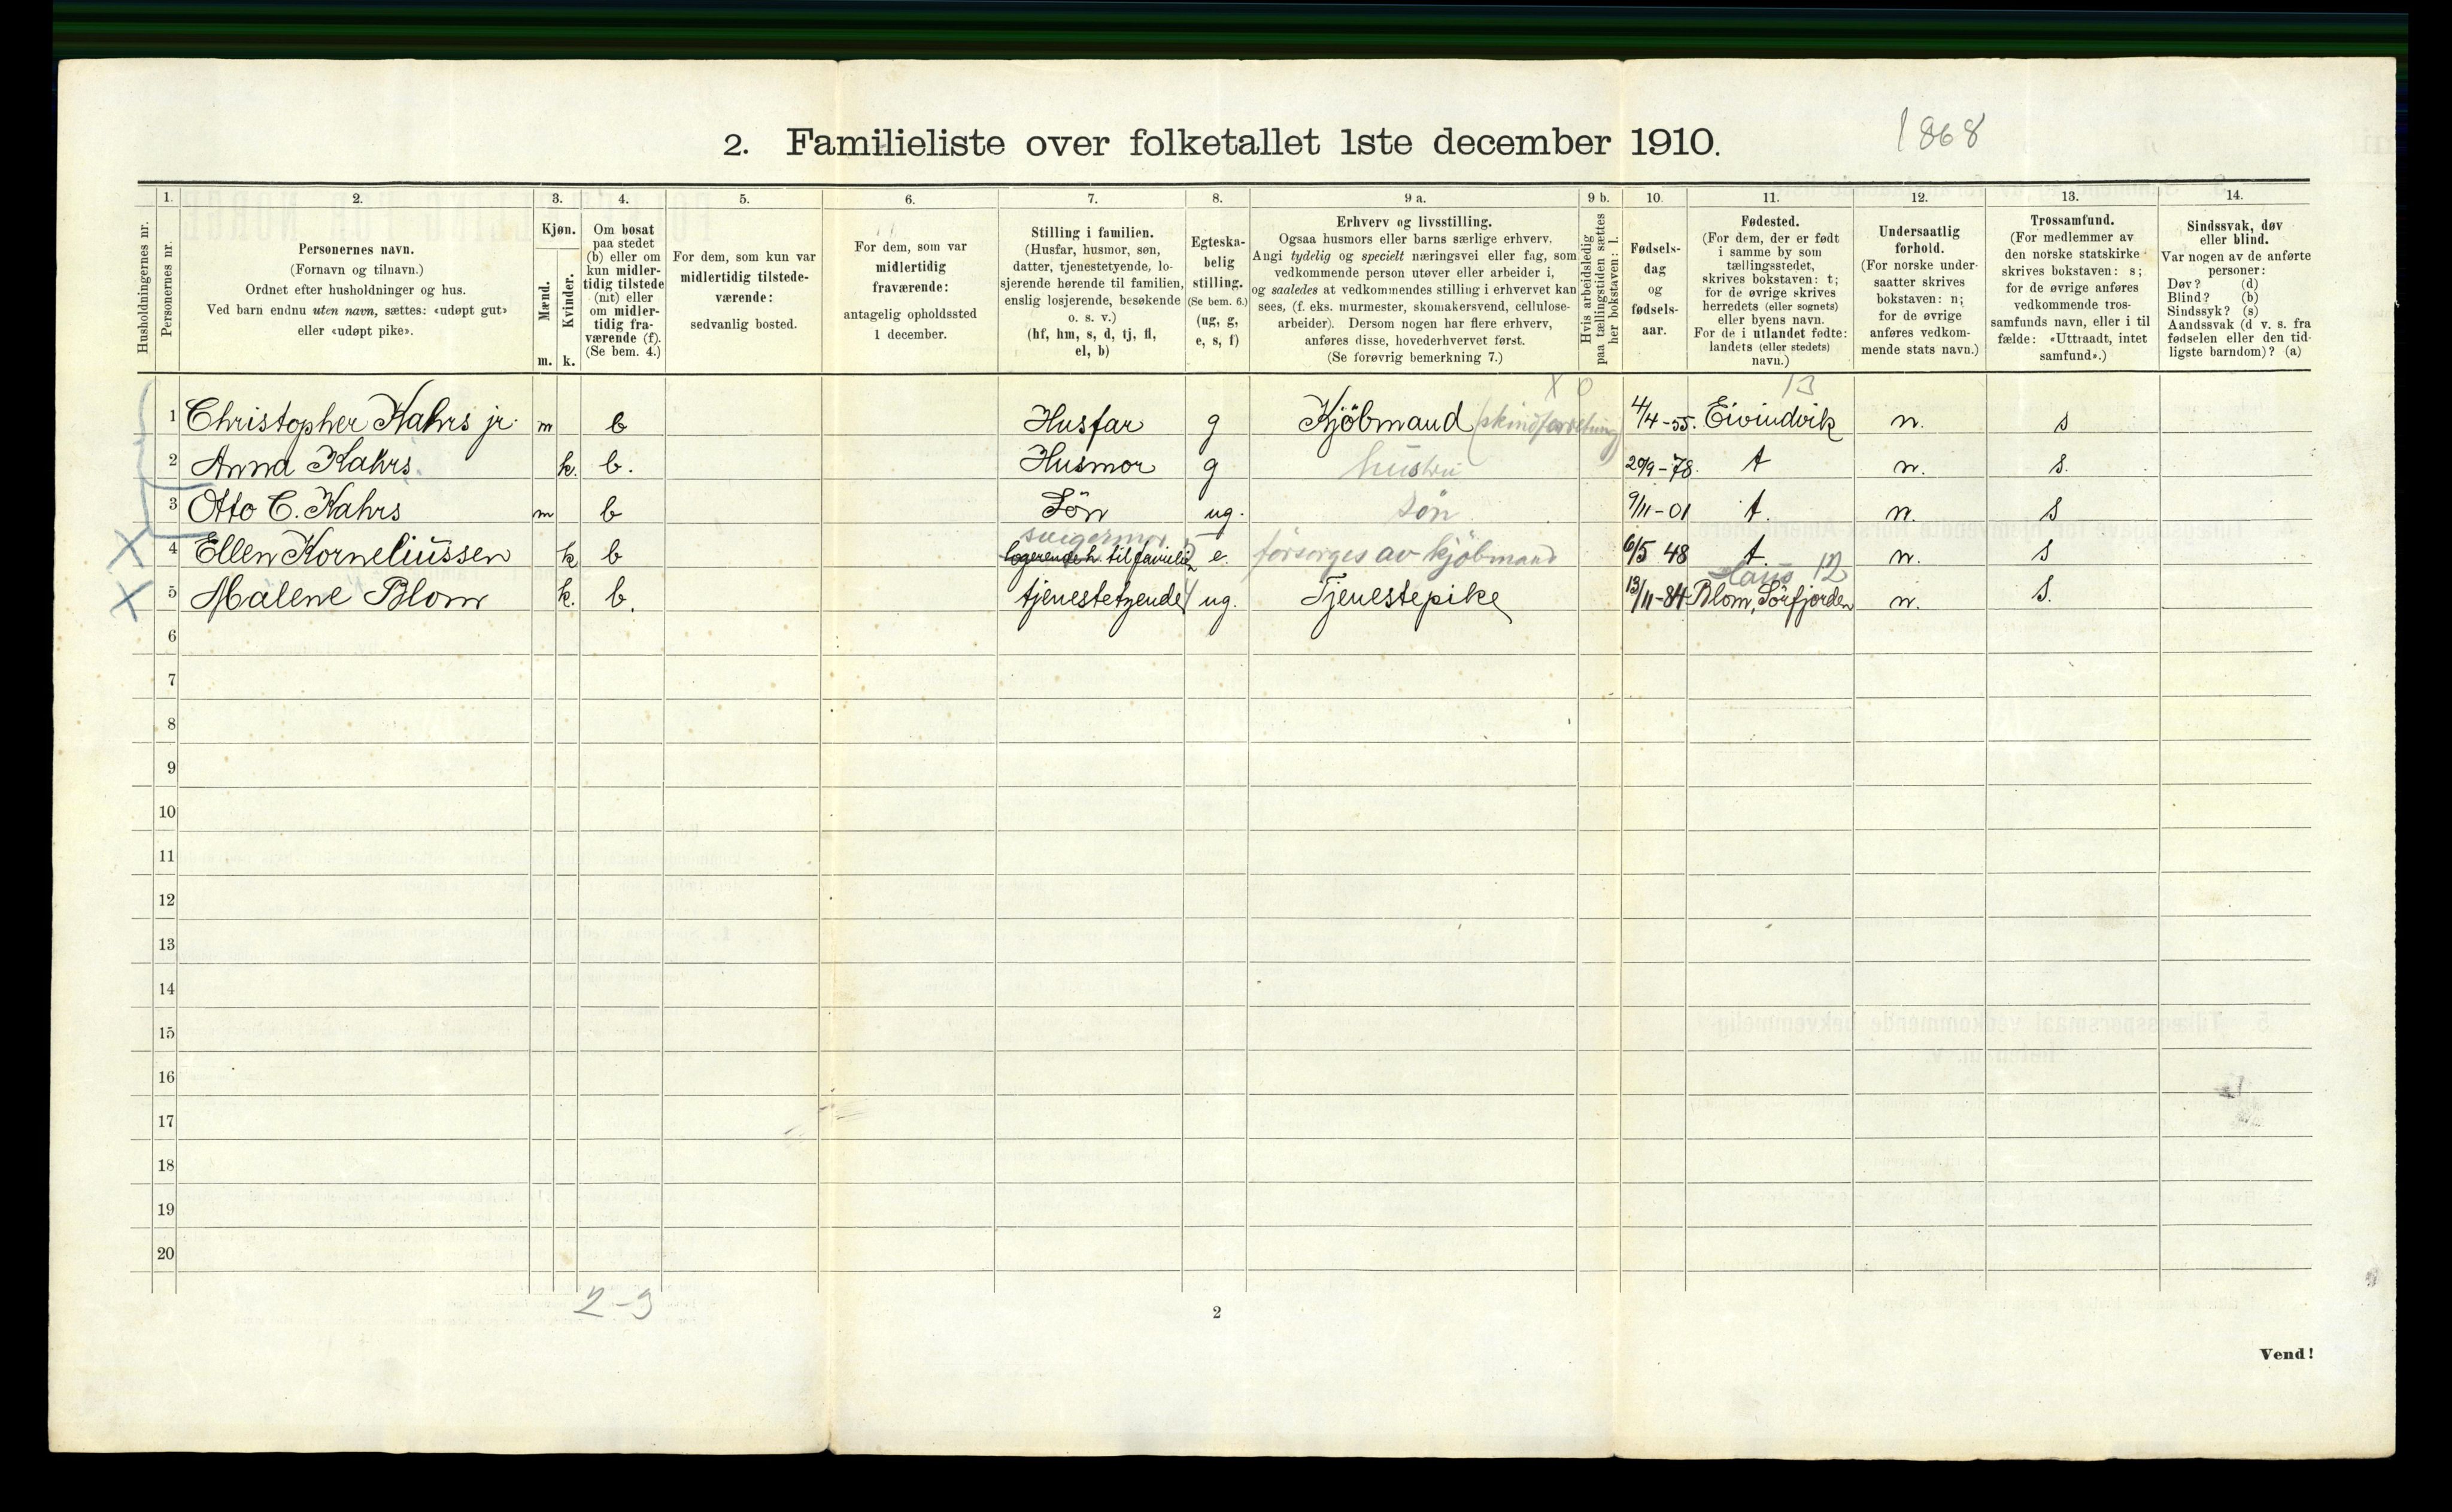 1868
2. Familieliste over folketallet 1ste december 1910.
Husholdningernes nr.
1. Personernes nr.
2. Personernes navn.
(Fornavn og tilnavn.)
Ordnet efter husholdninger og hus.
Ved barn endnu uten navn, sættes: «udøpt gut»
eller «udøpt pike».
3. Kjøn.
Mænd. m.
Kvinder. k.
4. Om bosat
paa stedet
(b) eller om
kun midler-
tidig tilstede
(mt) eller
om midler-
tidig fra-
værende (f).
(Se bem. 4.)
5. For dem, som kun var
midlertidig tilstede-
værende:
sedvanlig bosted.
6. For dem, som var
midlertidig
fraværende:
antagelig opholdssted
1 december.
7. Stilling i familien.
(Husfar, husmor, søn,
datter, tjenestetyende, lo-
sjerende hørende til familien,
enslig losjerende, besøkende
o. s. v.)
(hf, hm, s, d, tj, fl,
el, b)
8. Egteska-
belig
stilling.
(Se bem. 6.)
(ug, g,
e, s, f)
9 a. Erhverv og livsstilling.
Ogsaa husmors eller barns særlige erhverv.
Angi tydelig og specielt næringsvei eller fag, som
vedkommende person utøver eller arbeider i,
og saaledes at vedkommendes stilling i erhvervet kan
sees, (f. eks. murmester, skomakersvend, cellulose-
arbeider). Dersom nogen har flere erhverv,
anføres disse, hovederhvervet først.
(Se forøvrig bemerkning 7.)
9 b. Hvis arbeidsledig
paa tællingstiden sættes
her bokstaven: l.
10. Fødsels-
dag
og
fødsels-
aar.
11. Fødested.
(For dem, der er født
i samme by som
tællingsstedet,
skrives bokstaven: t;
for de øvrige skrives
herredets (eller sognets)
eller byens navn.
For de i utlandet fødte:
landets (eller stedets)
navn.)
12. Undersaatlig
forhold.
(For norske under-
saatter skrives
bokstaven: n;
for de øvrige
anføres vedkom-
mende stats navn.)
13. Trossamfund.
(For medlemmer av
den norske statskirke
skrives bokstaven: s;
for de øvrige anføres
vedkommende tros-
samfunds navn, eller i til
fælde: «Uttraadt, intet
samfund».)
14. Sindssvak, døv
eller blind.
Var nogen av de anførte
personer:
Døv? (d)
Blind? (b)
Sindssyk? (s)
Aandssvak (d v. s. fra
fødselen eller den tid-
ligste barndom)? (a)
x 0 13
1 Christopher Kahrs jr. m b Husfar g Kjöbmand (skindforretning) 4/4-55. Eivindvik n. s
2 Anna Kahrs k. b. Husmor g hustru 20/9-78. t n. s.
3 Otto C. Kahrs m b Sön ug. sön 9/11-01 t. n. s
svigermor
4 Ellen Korneliussen k b logerende h. til familien e. forsorges av kjöbmand 6/5 48 t. n. s
Haus 12
5 Malene Blom k. b. tjenestetyende ug. Tjenestepike 13/11-84 Blom, Sörfjorden n. s.
6
7
8
9
10
11
12
13
14
15
16
17
18
19
20
2-3
2
Vend!